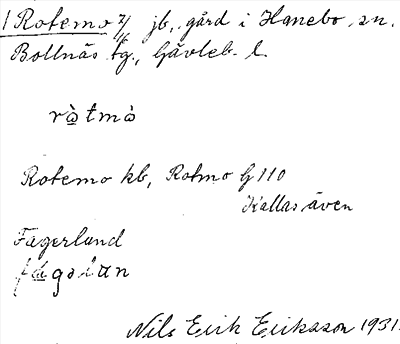 1 Rotemo 2/6 jb., gård i Hanebo sn.
Bollnäs tg., Gävleb. l.
rὰ̲tmὰ
Rotemo kb, Rotmo G 110
Kallas även
Fagerland
fά̲gəlan
Nils Erik Eriksson 1931.